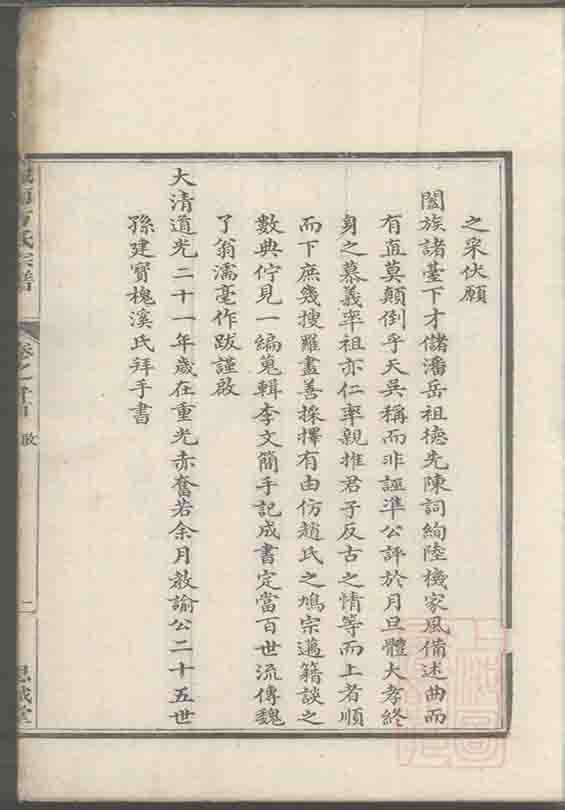 之采伏願
闔族諸臺下才儲潘岳祖德先陳詞絢陸機家風備述曲而
有直莫顛倒乎天吳稱而非誣準公評於月旦體大孝終
身之慕義率祖亦仁率親推君子反古之情等而上者順
而下庶幾搜羅盡善採擇有由仿趙氏之鳩宗邁籍談之
數典佇見一編蒐輯李文簡手記成書定當百世流傳魏
了翁濡毫作跋謹啟
大清道光二十一年歲在重光赤奮若余月教諭公二十五世
孫建寳槐溪氏拜手書
氏宗譜
卷之首
啟
二
思誠堂